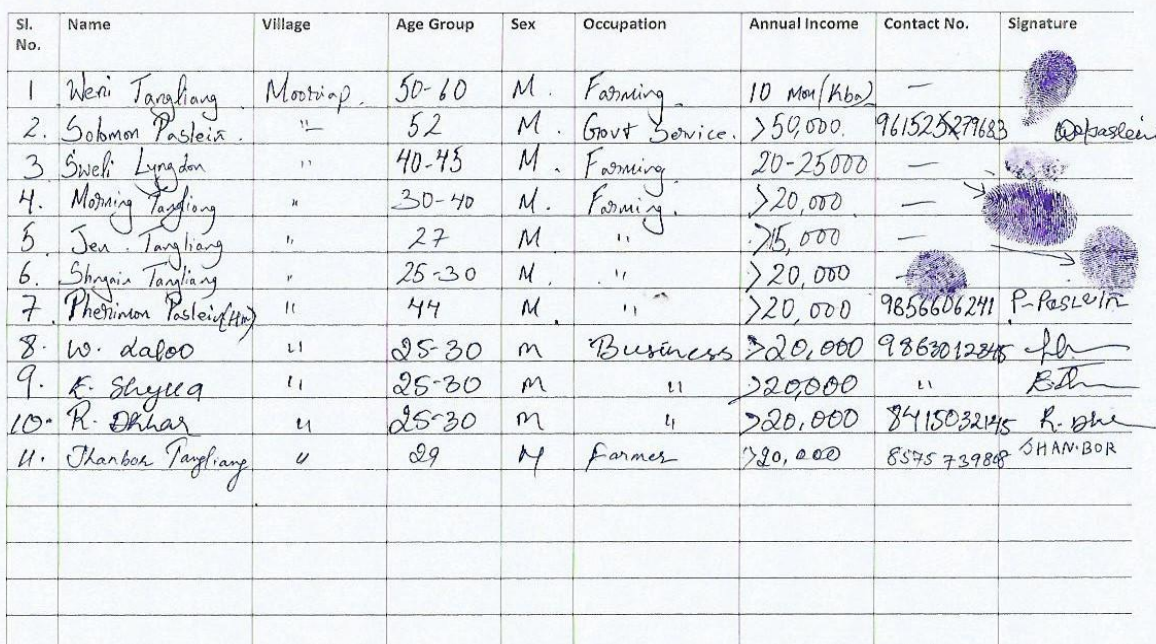 Sl. No. Name Village Age Group Sex Occupation Annual Income Contact No. Signature
1 Weni Tangliang Mooriap. 50-60 M. Farming 10 Mon (Kba) —
2. Solomon Paslein. " 52 M. Govt Service. >50,000. Paslein
3 Sweli Lyngdoh " 40-45 M. Farming 20-25000 —
4. Morning Tangliang " 30-40 M. Farming. >20,000 —
5 Jen. Tangliang " 27 M " >15,000 —
6. Tangliang " 25-30 M. " >20,000 -
7. Pherimon Paslein (Hm) " 44 M. " >20,000 9856606241 P-Paslein
8. W. Laloo " 25-30 M Business >20,000 9863012845
9. E. Shylla " 25-30 M " >20,000 "
10. R. Dkhar " 25-30 M " >20,000 8415032145
11. Shanbor Tangliang " 29 M Farmer >20,000 SHAN.BOR